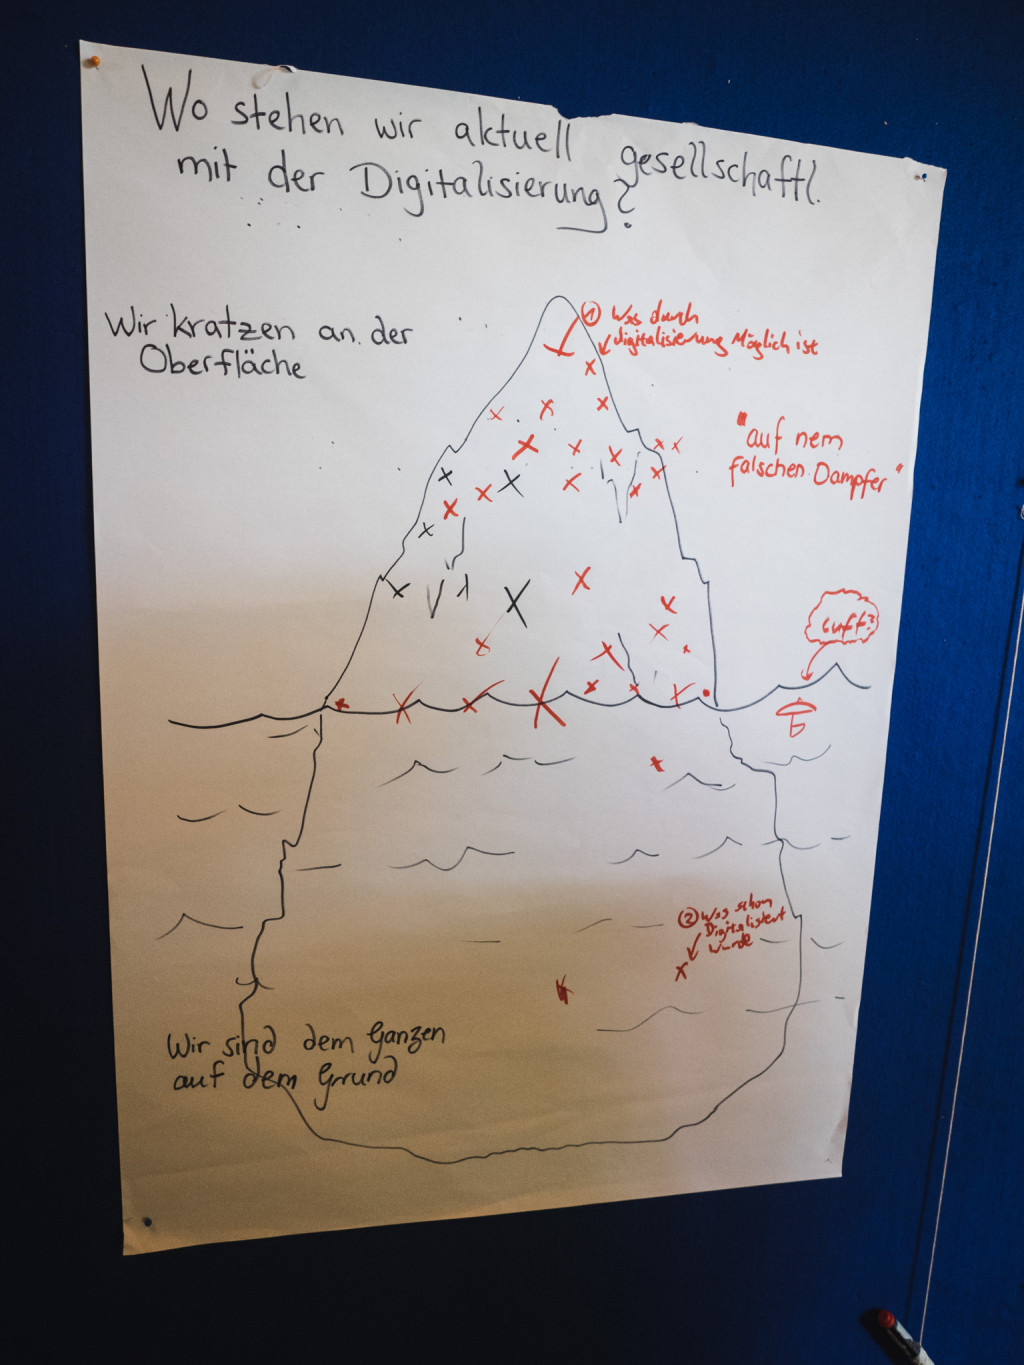 Wo stehen wir aktuell gesellschaftl.
mit der Digitalisierung?
Wir kratzen an der
Oberfläche
① Was durch
digitalisierung Möglich ist
"auf nem
falschen Dampfer"
Luft?
② Was schon
Digitalisiert
wurde
Wir sind dem Ganzen
auf dem Grrund